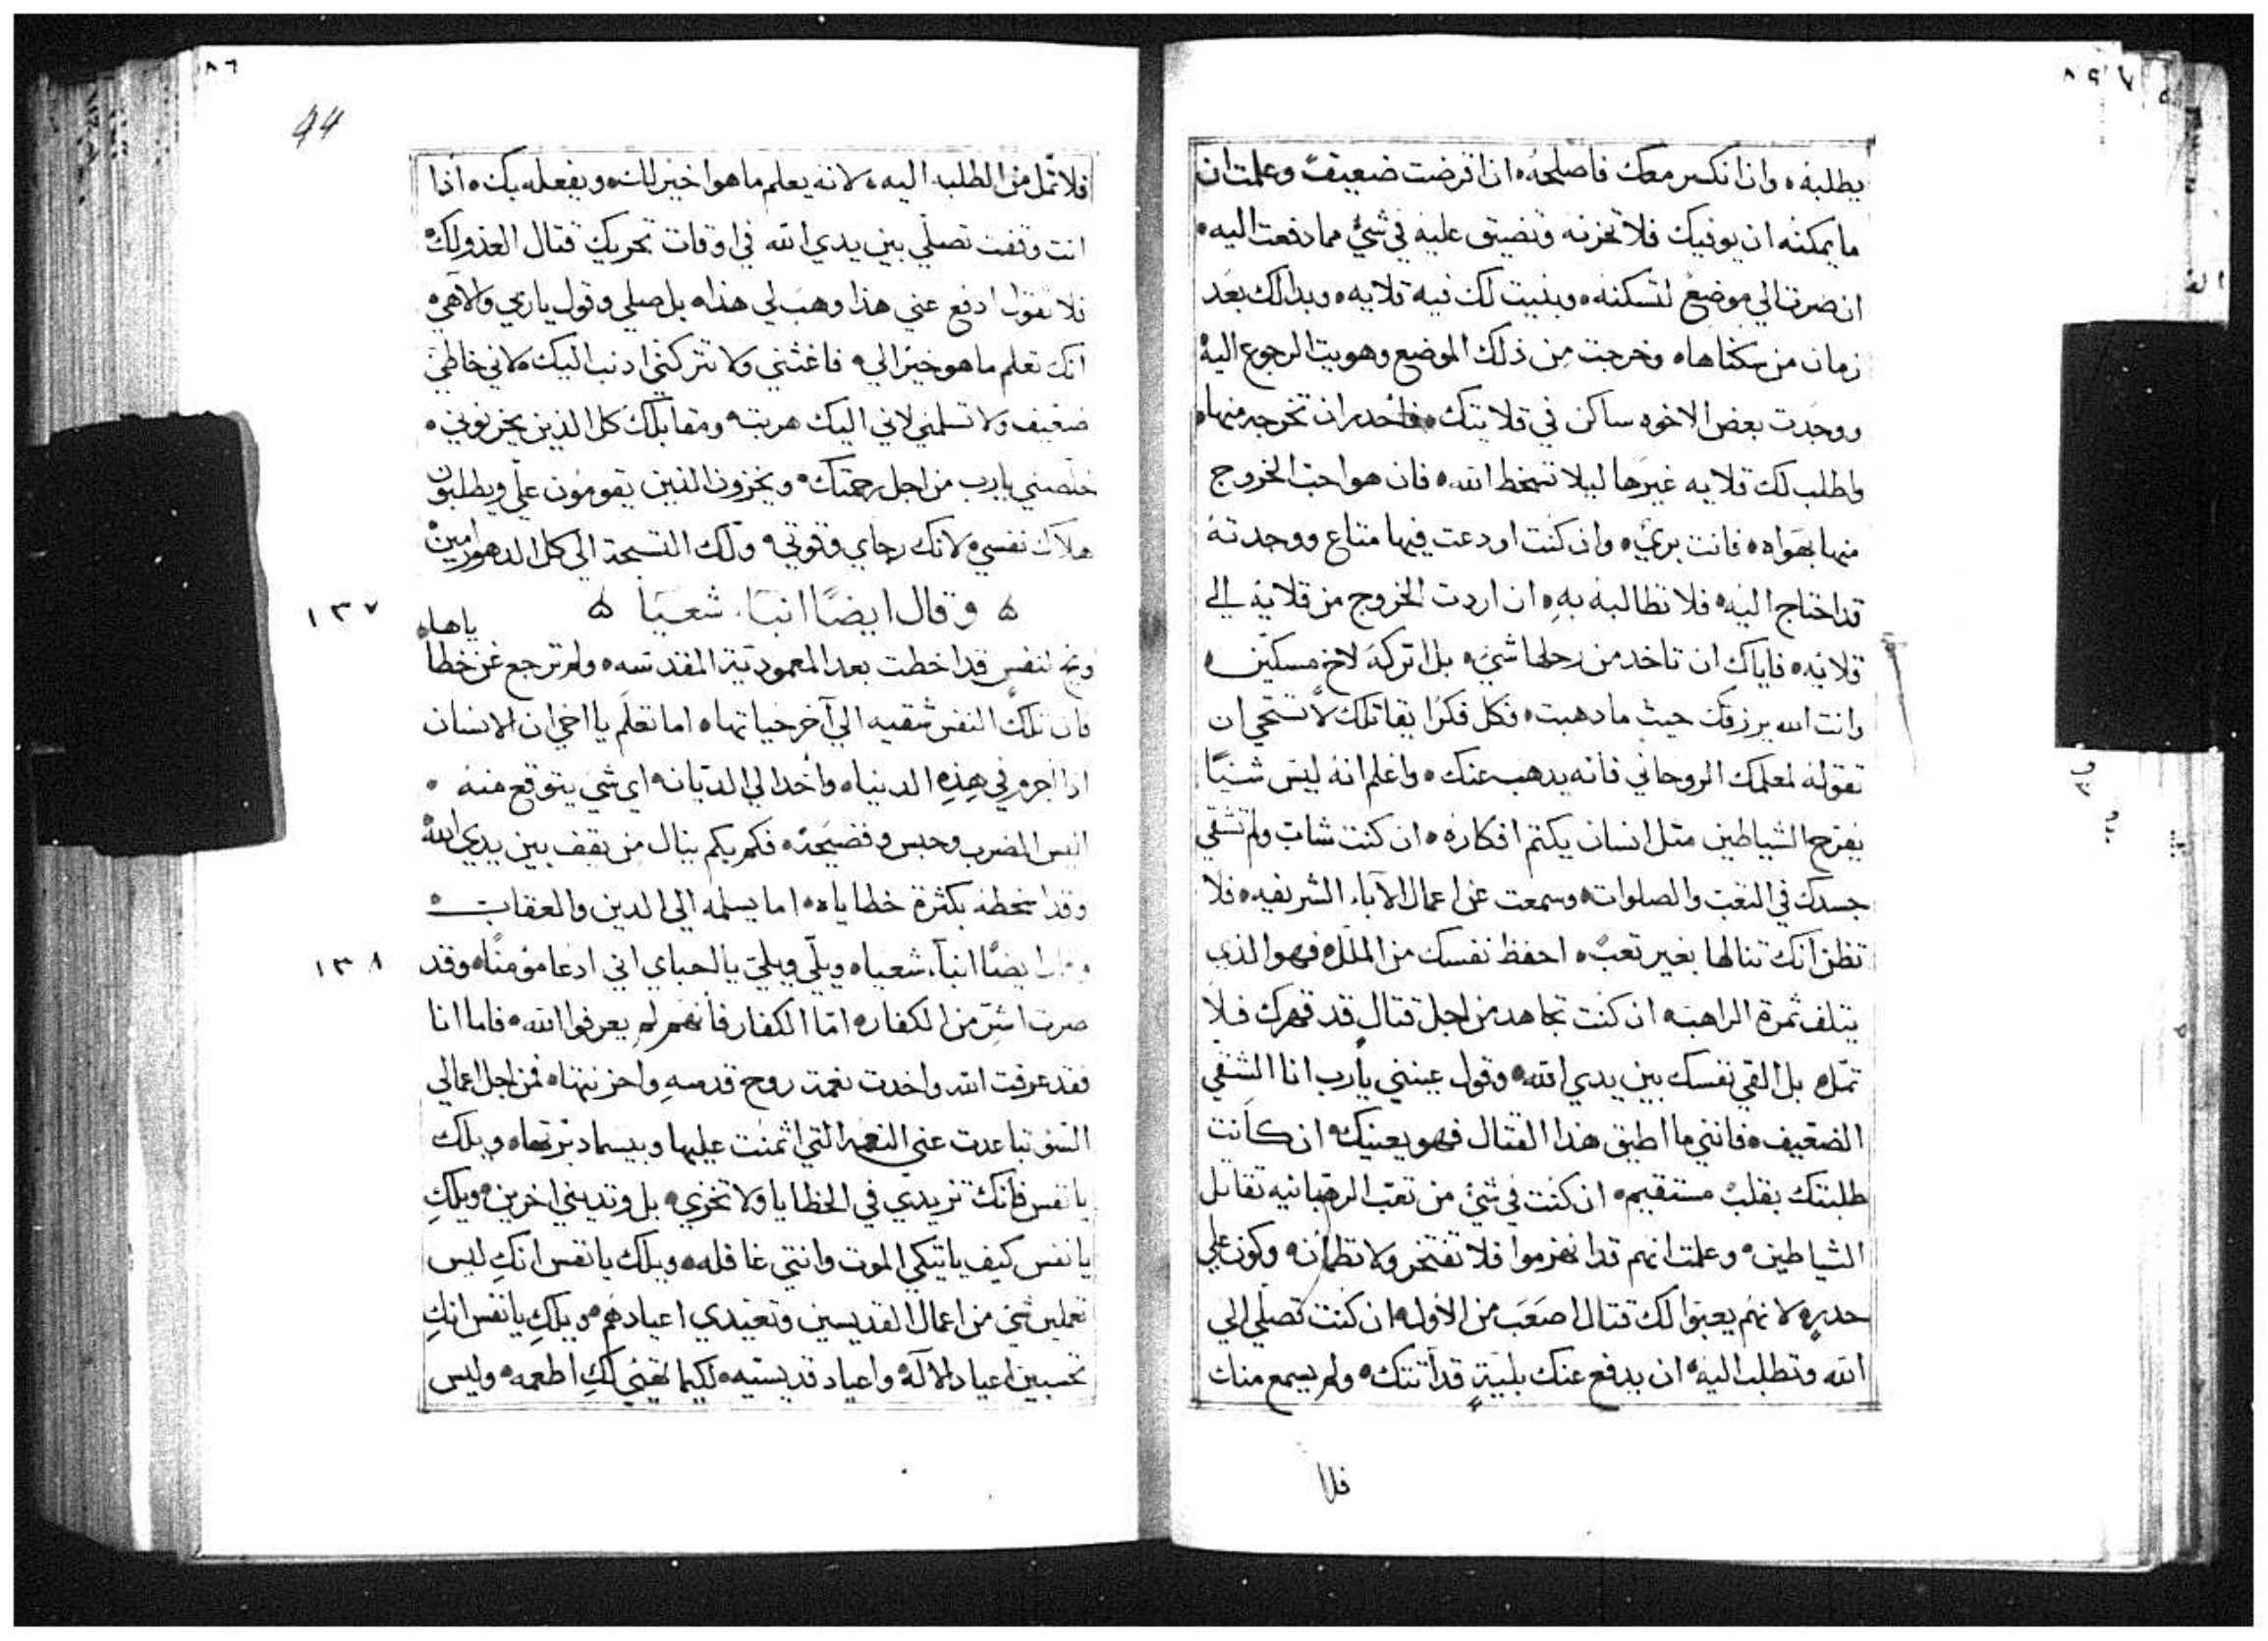 يطلبه ٥ وان انكسر معك فاصلحه ٥ ان اقرضت ضعيف وعلمت ان
ما يمكنه ان يوفيك فلا تحزنه وتضيق عليه في شي مما دفعت اليه ٥
ان صرت الي موضع لتسكنه ٥ وبنيت لك فيه قلايه ٥ وبدا لك بعد
زمان من سكناها ٥ وخرجت من ذلك الموضع وهويت الرجوع اليه
ووجدت بعض الاخوه ساكن في قلايتك ٥ فاحدر ان تخرجه منها ٥
واطلب لك قلايه غيرها ليلا تسخط الله ٥ فان هو احب الخروج
منها بهواه ٥ فانت بري ٥ وان كنت اودعت فيها متاع ووجدته
قد احتاج اليه ٥ فلا تطالبه به ٥ ان اردت الخروج من قلايه الي
قلايه ٥ فاياك ان تاخد من رحلها شي ٥ بل اتركه لاخ مسكين ٥
وانت الله يرزقك حيث ما دهبت ٥ فكل فكرا يقاتلك لا تستحي ان
تقوله لمعلمك الروحاني فانه يدهب عنك ٥ واعلم انه ليس شيا
يفرح الشياطين مثل انسان يكتم افكاره ٥ ان كنت شاب ولم تشقي
جسدك في التعب والصلوات ٥ وسمعت عن اعمال الآباء الشريفيه ٥ فلا
تظن انك تنالها بغير تعب ٥ احفظ نفسك من الملل ٥ فهو الذي
يتلف ثمرة الراهب ٥ ان كنت تجاهد من اجل قتال قد قهرك فلا
تمل ٥ بل القي نفسك بين يدي الله ٥ وقول عينني يارب انا الشقي
الضعيف ٥ فانني ما اطيق هذا القتال فهو يعينك ٥ ان كانت
طلبتك بقلب مستقيم ٥ ان كنت في شي من تعب الرهبانيه تقاتل
الشياطين ٥ وعلمت انهم قد انهزموا فلا تفتخر ولا تطمان ٥ وكون علي
حدر ٥ لانهم يعبوا لك قتال اصعب من الاول ٥ ان كنت تصلي الي
الله وتطلب اليه ان يدفع عنك بلية قد اتتك ٥ ولم يسمع منك
فلا
٨٦
44
فلا تمل من الطلبه اليه ٥ لانه يعلم ما هوا خير لك ٥ ويفعله بك ٥ اذا
انت وقفت تصلي بين يدي الله في اوقات تحريك قتال العدو لك
فلا تقول ادفع عني هذا وهب لي هذا ٥ بل صلي وقول ياربي والاهي ٥
انك تعلم ما هو خير الي ٥ فاغثني ولا تتركني ادنب اليك ٥ لاني خاطي
ضعيف ولا تسلمني لاني اليك هربت ٥ ومقابلك كل الذين يحزنوني ٥
خلصني يارب من اجل رحمتك ٥ ويخزون الذين يقومون علي ويطلبون
هلاك نفسي ٥ لانك رجاي وقوتي ٥ ولك التسبحة الي كل الدهور امين
١٣٧
ه وقال ايضًا انبا شعيا ه
ياهاه
ويح لنفس قد اخطت بعد المعمودية المقدسه ٥ ولم ترجع عن خطا
فان تلك النفس شقيه الي آخر حياتها ٥ اما تعلم يا اخي ان الانسان
اذا اجرم في هذه الدنيا ٥ واخد الي الديان ٥ اي شي يتوقع منه ٥
اليس الضرب وحبس وفضيحه ٥ فكم بكم ينال من يقف بين يدي الله
وقد اسخطه بكثرة خطاياه ٥ اما يسلمه الي الدين والعقاب
١٣٨
وقال ايضًا انبآ شعيا ٥ ويلي ويلي يا لحباي اني ادعا مؤمنًا ٥ وقد
صرت اشر من الكفار ٥ امّا الكفار فانهم لم يعرفوا الله ٥ فاما انا
فقد عرفت الله واخدت نعمة روح قدسه واحزنتها ٥ فمن اجل اعمالي
السو تباعدت عني النعمه التي اثمنت عليها وبيسما دبرتها ٥ ويلك
يا نفس فانك تزيدي في الخطايا ولا تخزي ٥ بل وتديني اخرين ٥ ويلك
يا نفس كيف ياتيكي الموت وانتي غافله ٥ ويلك يا نفس انك ليس
تعملين شي من اعمال القديسين وتعيدي اعيادهم ٥ ويلك يا نفس انك
تحسبين اعياد الآله واعياد قديسيه ٥ لكيما تهيئي لك اطعمه ٥ وليس